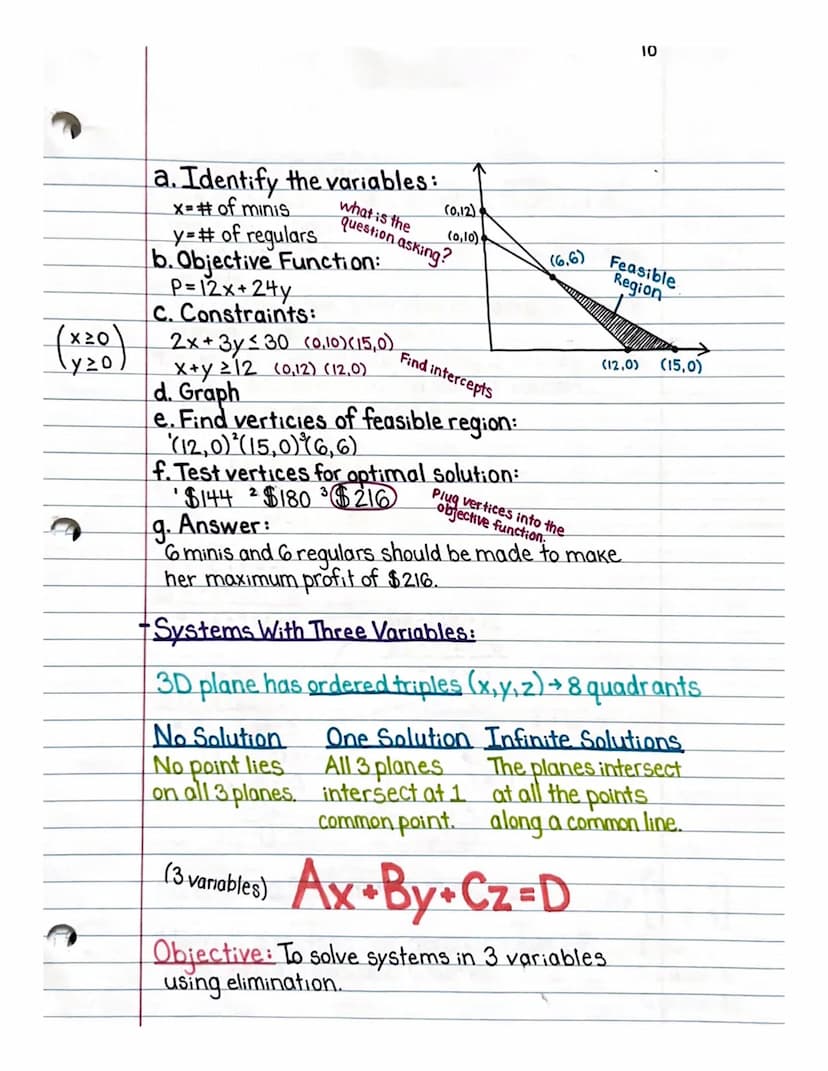 10
a. Identify the variables:
x=# of minis
y=# of regulars
what is the
question asking?
b. Objective Function:
P=12x+24y
c. Constraints:
(x≥0
y≥0)
2x+3y≤30 (0,10)(15,0)
x+y≥12 (0,12) (12,0)
Find intercepts
(0,12)
(0,10)
(6,6)
Feasible
Region
(12,0) (15,0)
d. Graph
e. Find verticies of feasible region:
¹(12,0)²(15,0)³(6,6)
f. Test vertices for optimal solution:
¹$144 ²$180 ³$216
Plug vertices into the
objective function.
g. Answer:
6 minis and 6 regulars should be made to make
her maximum profit of $216.
-Systems With Three Variables:
3D plane has ordered triples (x,y,z)→8 quadrants
No Solution One Solution Infinite Solutions
No point lies All 3 planes The planes intersect
on all 3 planes. intersect at 1 at all the points
common point. along a common line.
(3 variables) Ax+By+Cz=D
Objective: To solve systems in 3 variables
using elimination.